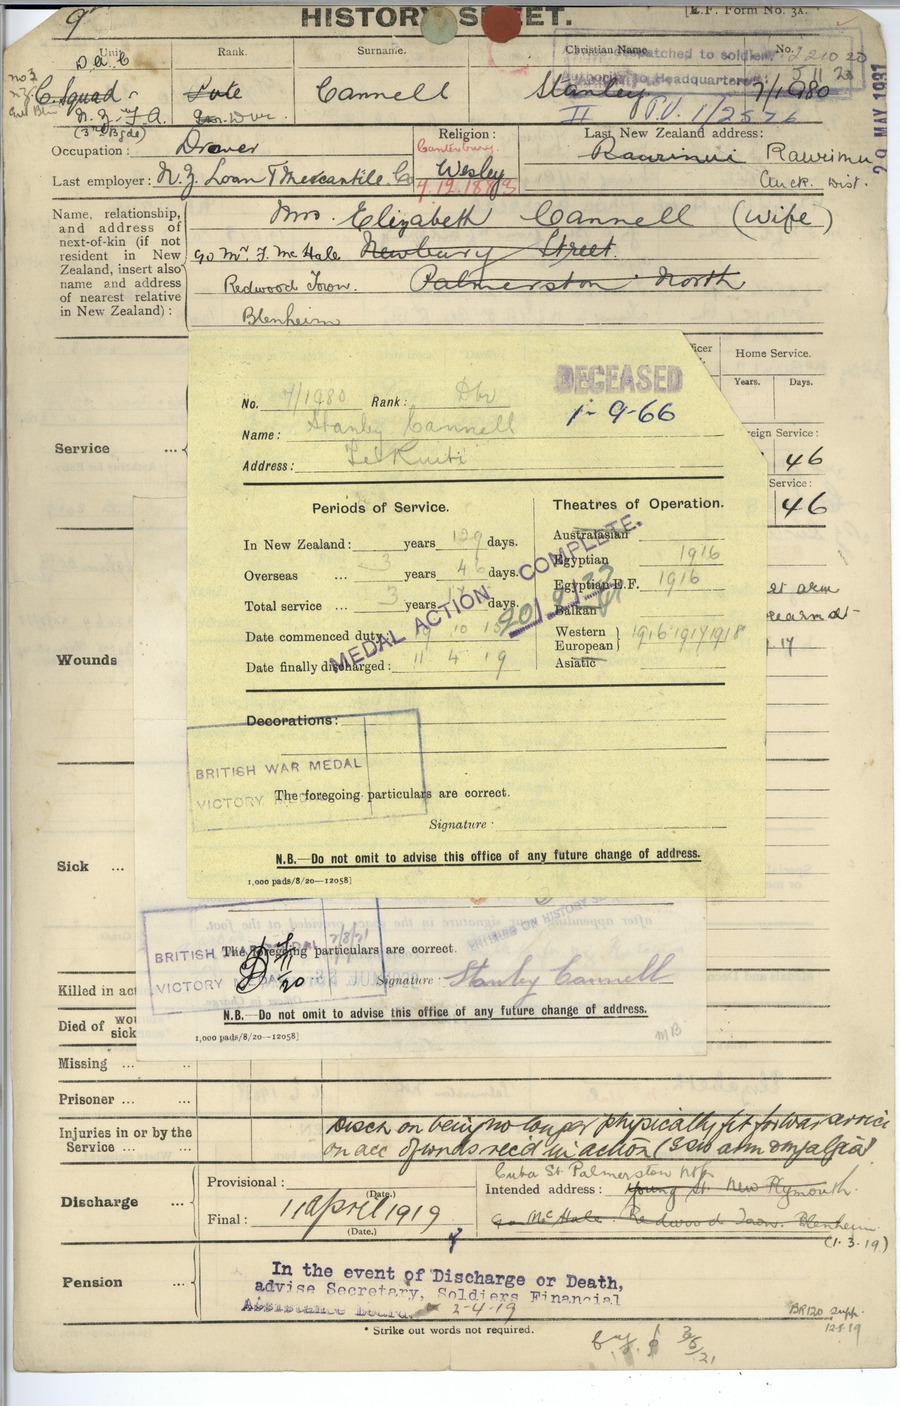 HISTORY SHEET.
[E.F. Form No. 3A.
9
Unit.
Rank.
Surname.
Christian Name.
No.
D a C
C. Squad
N.Z. F.A.
(3rd Bgde)
Dvr.
Cannell
Stanley
7/1980
dispatched to soldier
Headquarters:
5 11 21
II P.V. 1/2576
29 MAY 1931
Occupation:
Drover
Last employer: N.Z. Loan & Mercantile Co
Religion:
Canterbury.
Wesley
4.12.1883
Last New Zealand address:
Raurimui Raurimu
Auck. Dist.
Name, relationship,
and address of
next-of-kin (if not
resident in New
Zealand, insert also
name and address
of nearest relative
in New Zealand):
Mrs. Elizabeth Cannell (Wife)
c/o Mrs F. McHale Newbury Street.
Redwood Town. Palmerston North
Blenheim
Home Service.
Years. Days.
Service ...
reign Service:
46
Service:
46
No. 7/1980 Rank: Dvr
Name: Stanley Cannell
Address: Te Kuiti
DECEASED
1-9-66
Periods of Service.
Theatres of Operation.
In New Zealand: years 129 days.
Overseas ... 3 years 46 days.
Total service ... 3 years days.
Date commenced duty 10
Date finally discharged: 11 4 19
Australasian
Egyptian 1916
Egyptian E.F. 1916
Balkan
Western
European } 1916 1917 1918
Asiatic
MEDAL ACTION COMPLETE.
Decorations:
BRITISH WAR MEDAL
VICTORY
The foregoing particulars are correct.
Signature:
N.B.—Do not omit to advise this office of any future change of address.
1,000 pads/8/20—12058]
Wounds
arm
17
Sick ...
BRITISH WAR MEDAL
VICTORY
7/8/21
The foregoing particulars are correct.
Signature: Stanley Cannell
N.B.—Do not omit to advise this office of any future change of address.
1,000 pads/8/20—12058]
MB
Killed in act
Died of wou
sick
Missing ... ...
Prisoner ... ...
Injuries in or by the
Service ... ...
Disch. on being no longer physically fit for war service
on acc of wnds rec'd in action (GSW arm & myalgia)
Discharge ...
Provisional:
(Date.)
Final: 11 April 1919
(Date.)
Cuba St Palmerston Nth
Intended address: Young St. New Plymouth.
c/o McHale. Redwood Town. Blenheim.
(1.3.19)
Pension ...
In the event of Discharge or Death,
advise Secretary, Soldiers Financial
Assistance Board. 2-4-19
* Strike out words not required.
3/6/21